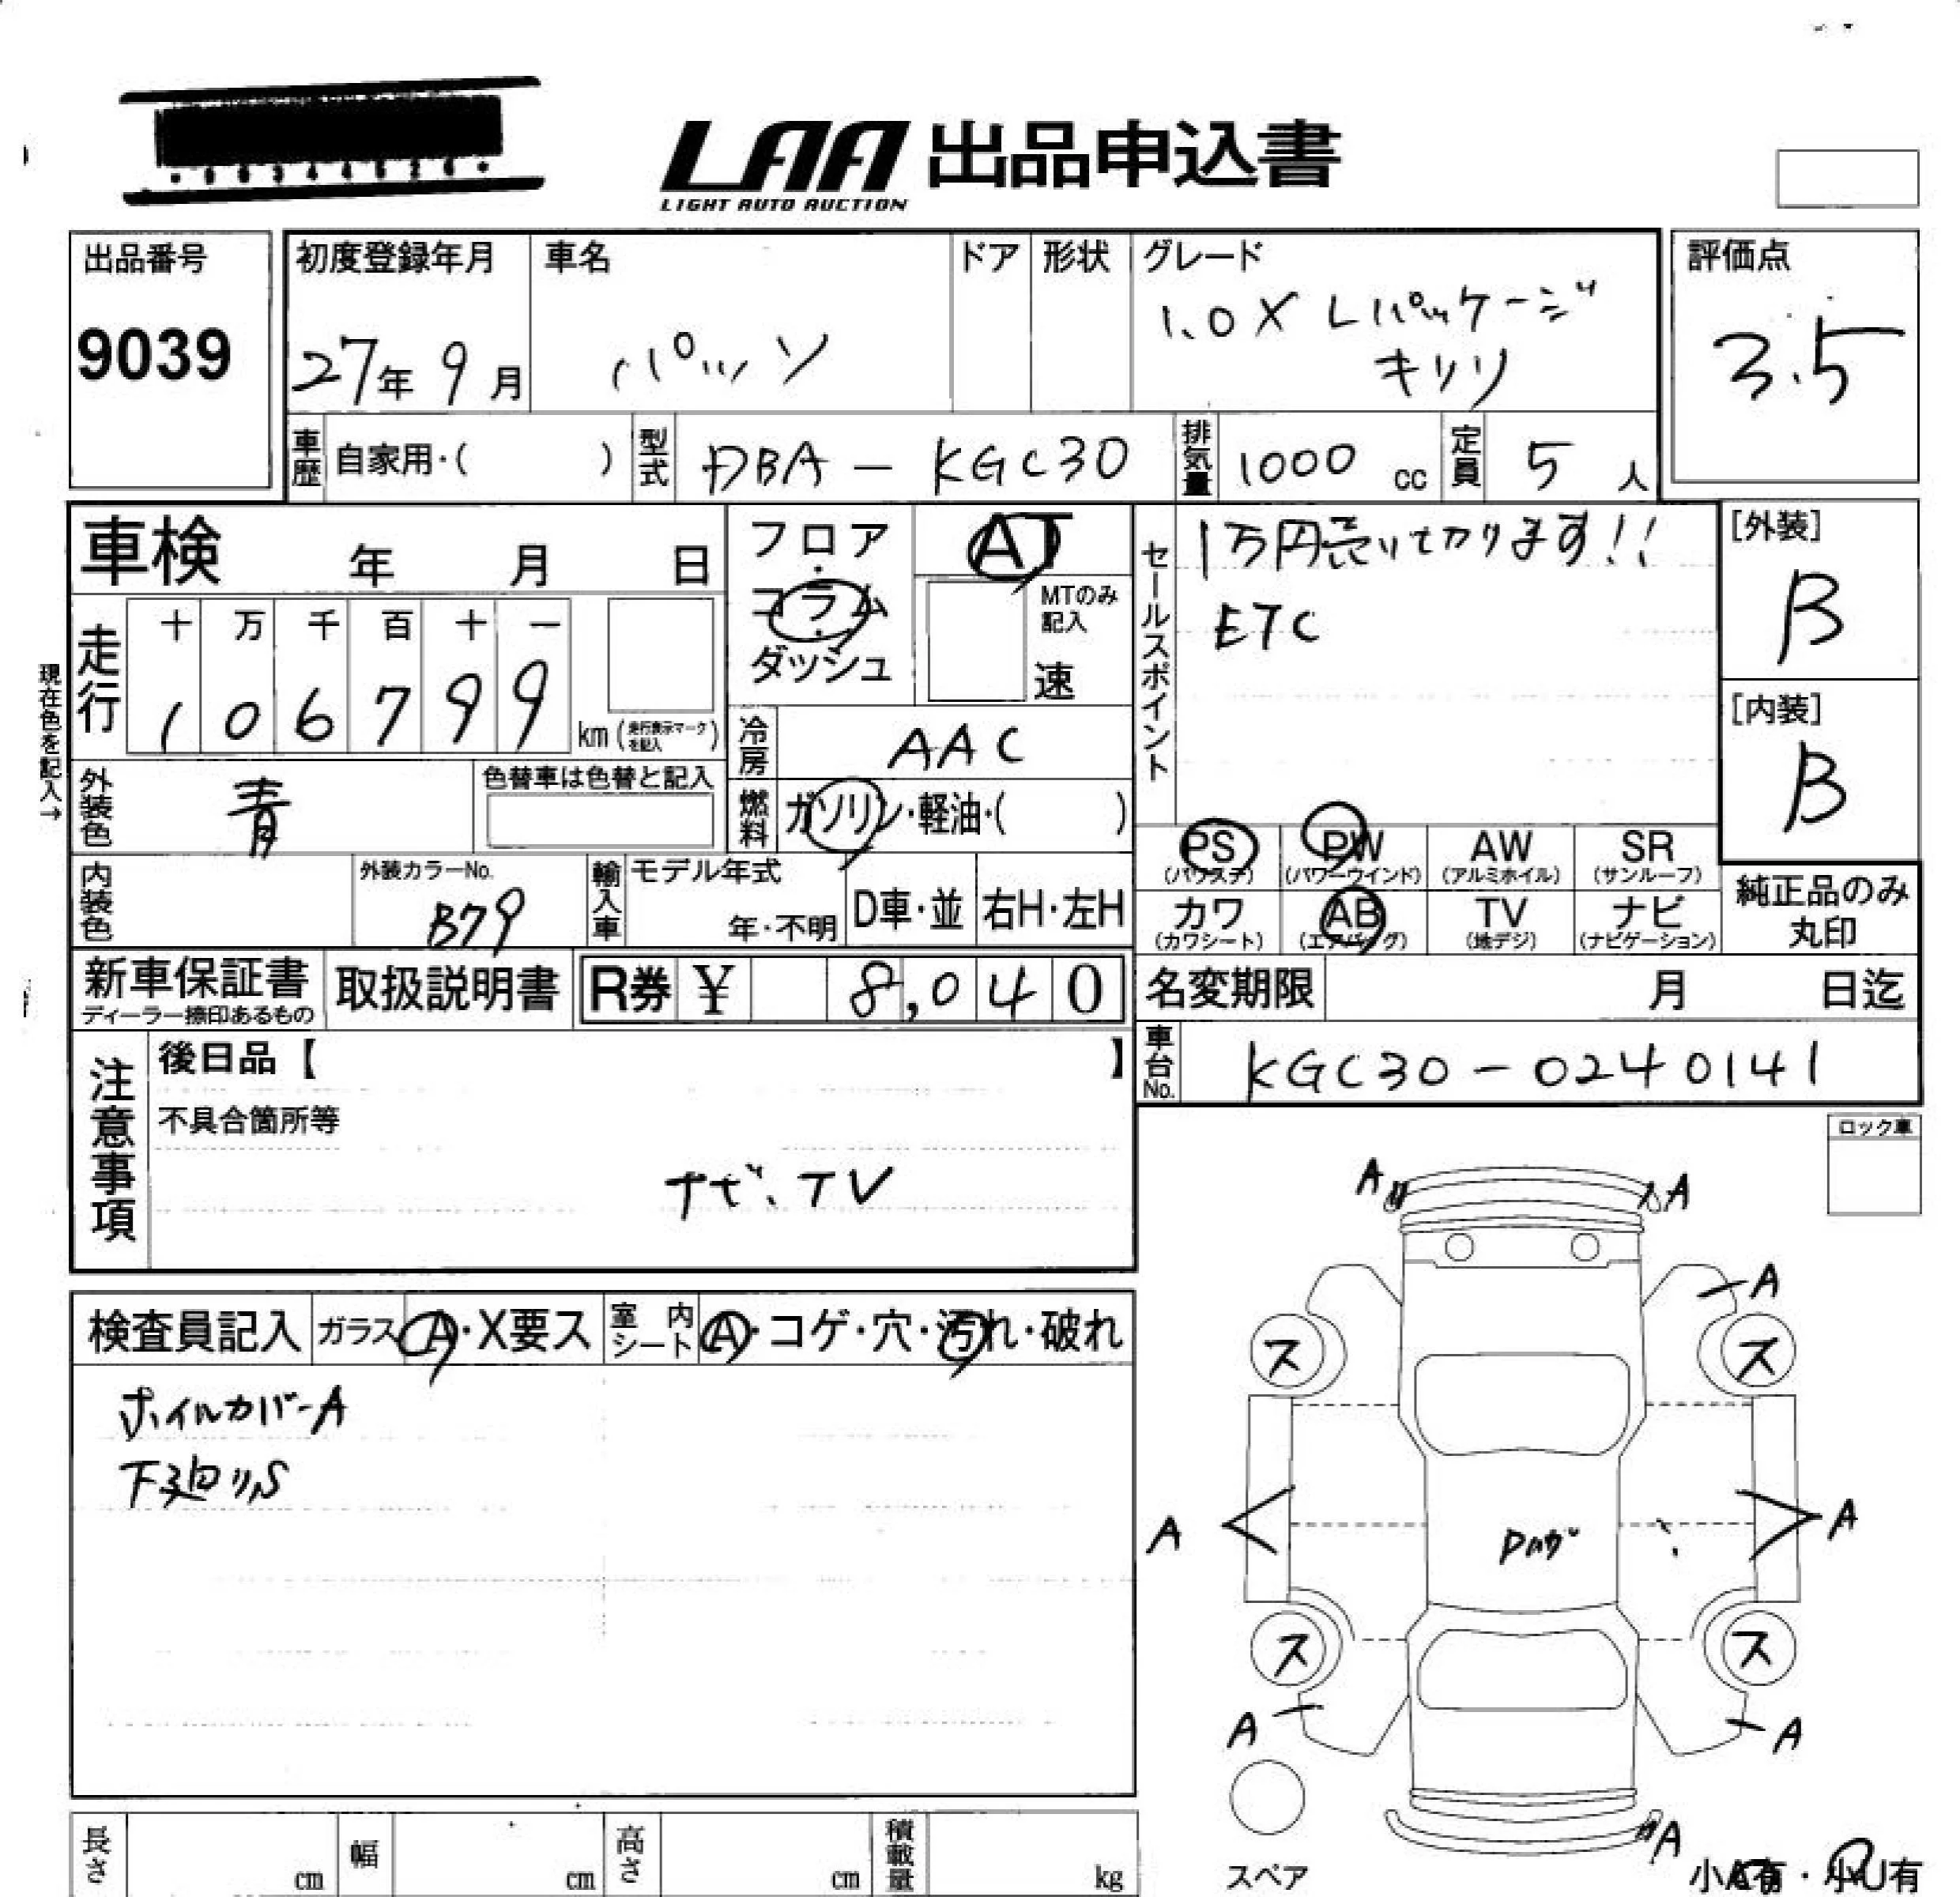 LAA 出品申込書
LIGHT AUTO AUCTION
出品番号
9039
初度登録年月
27年 9月
車名
パッソ
ドア
形状
グレード
1.0X Lパッケージ
キリリ
評価点
3.5
車歴
自家用・( )
型式
DBA - KGC30
排気量
1000 cc
定員
5 人
車検 年 月 日
フロア・コラム・ダッシュ
AT
MTのみ記入
速
セールスポイント
1万円売り切ります!!
ETC
[外装]
B
[内装]
B
現在色を記入→
走行
十 万 千 百 十 一
1 0 6 7 9 9
km(走行表示マークを記入)
冷房
AAC
外装色
青
色替車は色替と記入
燃料
ガソリン・軽油・( )
PS (パワステ)
PW (パワーウインド)
AW (アルミホイル)
SR (サンルーフ)
カワ (カワシート)
AB (エアバッグ)
TV (地デジ)
ナビ (ナビゲーション)
純正品のみ丸印
内装色
外装カラーNo.
B79
輸入車
モデル年式
年・不明
D車・並
右H・左H
新車保証書
ディーラー捺印あるもの
取扱説明書
R券 ¥ 8,040
名変期限 月 日迄
車台No.
KGC30-0240141
注意事項
後日品【 】
不具合箇所等
ナビ、TV
ロック車
検査員記入
ガラス A・X要ス
室内シート A・コゲ・穴・汚れ・破れ
ホイルカバーA
下廻りS
A A
A
ス ス
A A
ス ス
A A
A
スペア
小A有・小U有
長さ cm
幅 cm
高さ cm
積載量 kg